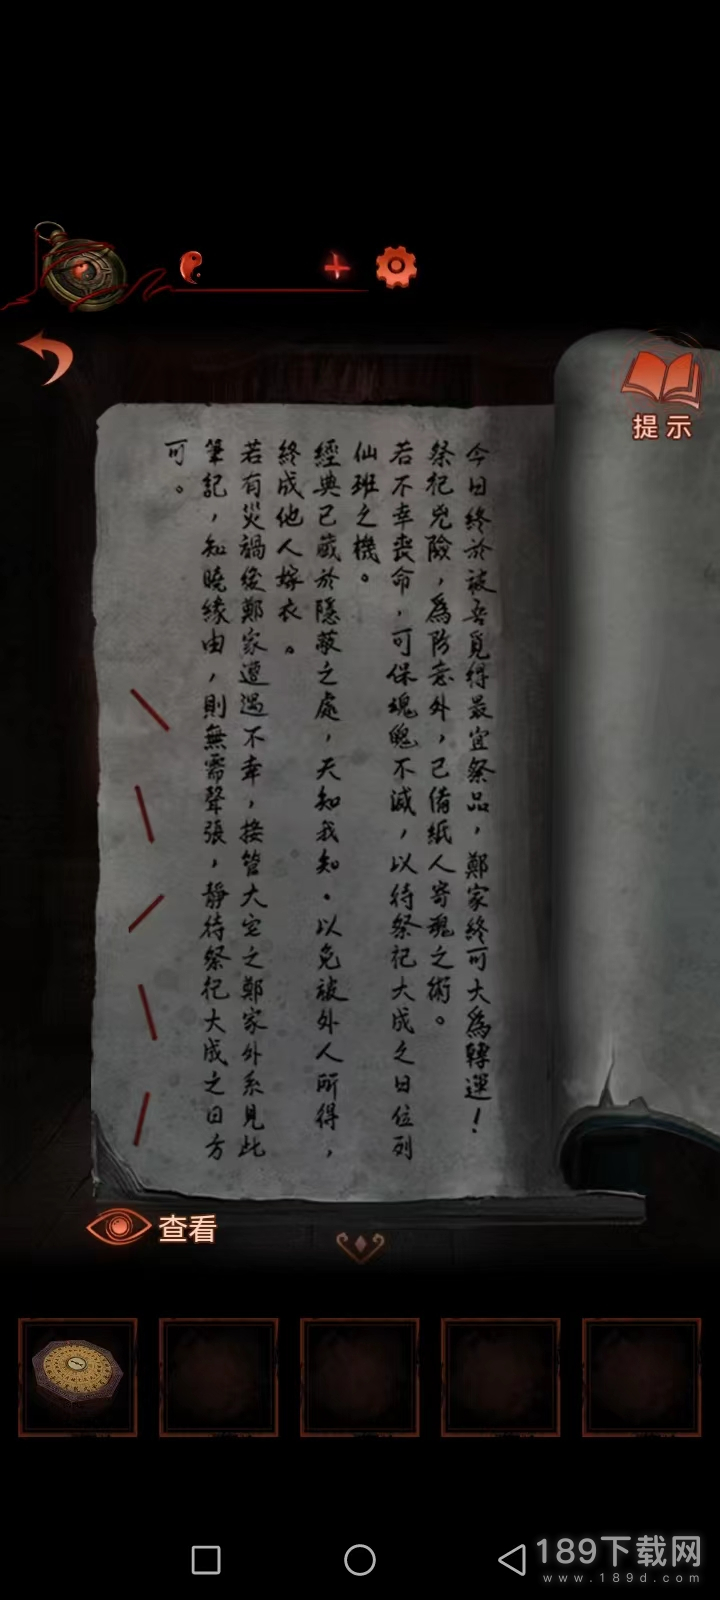 提示
今日終於被吾覓得最宜祭品，鄭家終可大爲轉運！
祭祀兇險，爲防意外，已備紙人寄魂之術。
若不幸喪命，可保魂魄不滅，以待祭祀大成之日位列
仙班之機。
經典已藏於隱蔽之處，天知我知。以免被外人所得，
終成他人嫁衣。
若有災禍後鄭家遭遇不幸，接管大宅之鄭家外系見此
筆記，知曉緣由，則無需聲張，靜待祭祀大成之日方
可。
查看
189下载网
www.189d.com